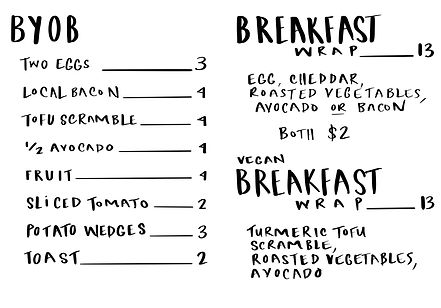 BYOB
TWO EGGS 3
LOCAL BACON 4
TOFU SCRAMBLE 4
1/2 AVOCADO 4
FRUIT 4
SLICED TOMATO 2
POTATO WEDGES 3
TOAST 2
BREAKFAST
WRAP 13
EGG, CHEDDAR,
ROASTED VEGETABLES,
AVOCADO OR BACON
BOTH $2
VEGAN
BREAKFAST
WRAP 13
TURMERIC TOFU
SCRAMBLE,
ROASTED VEGETABLES,
AVOCADO